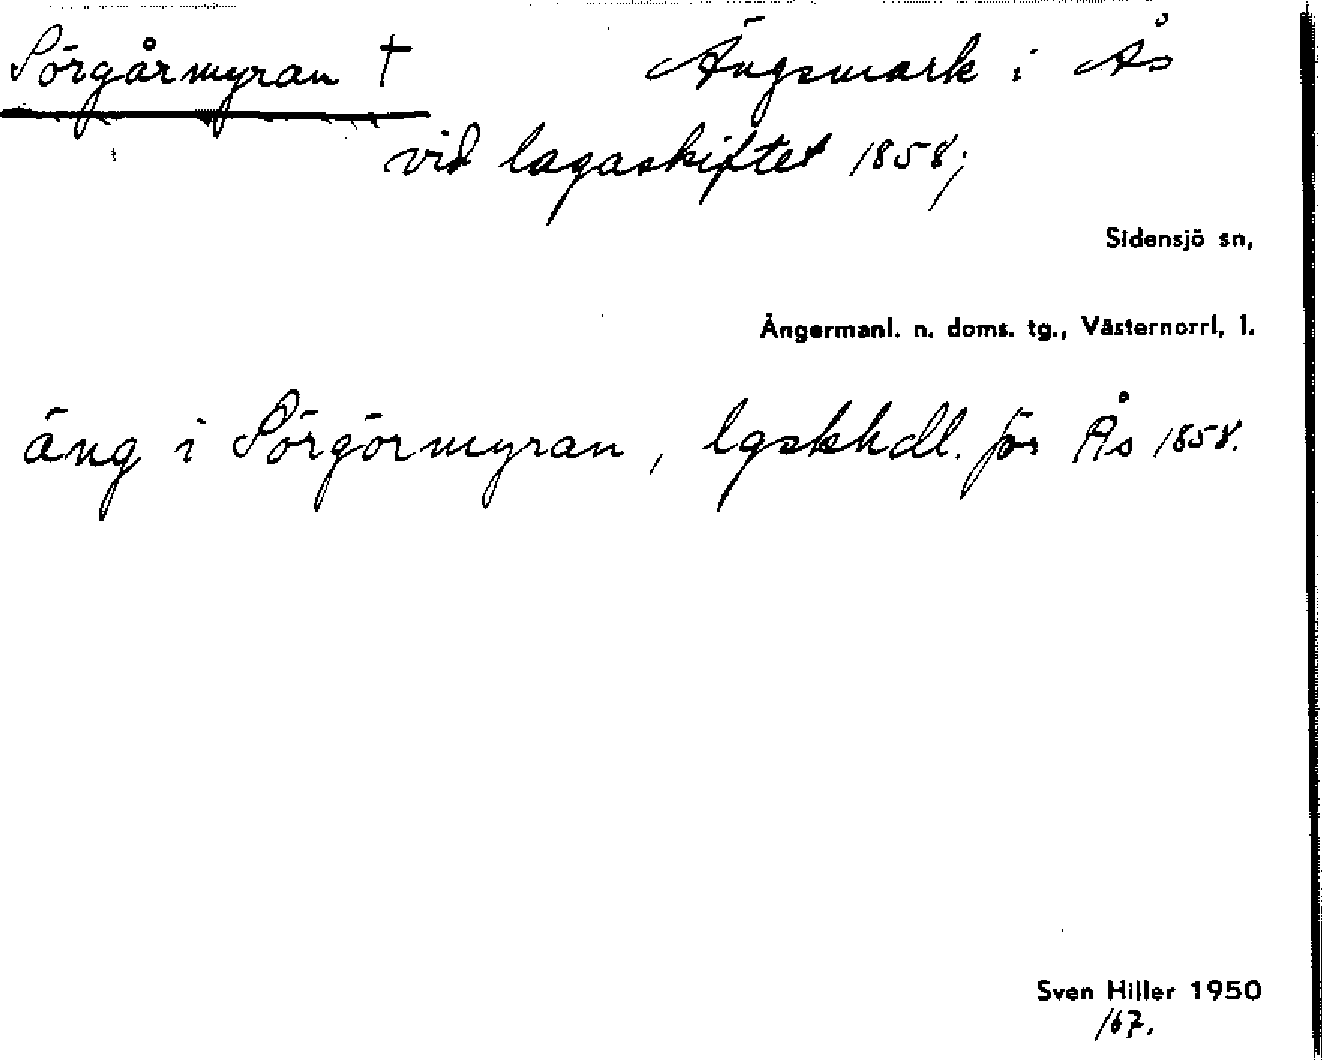 Sörgårmyran † Ängsmark i Ås
vid lagaskiftet 1858;
Sidensjö sn,
Ångermanl. n. doms. tg., Västernorrl. l.
äng i Sörgörmyran, lgskhdl. för Ås 1858.
Sven Hiller 1950
/67.